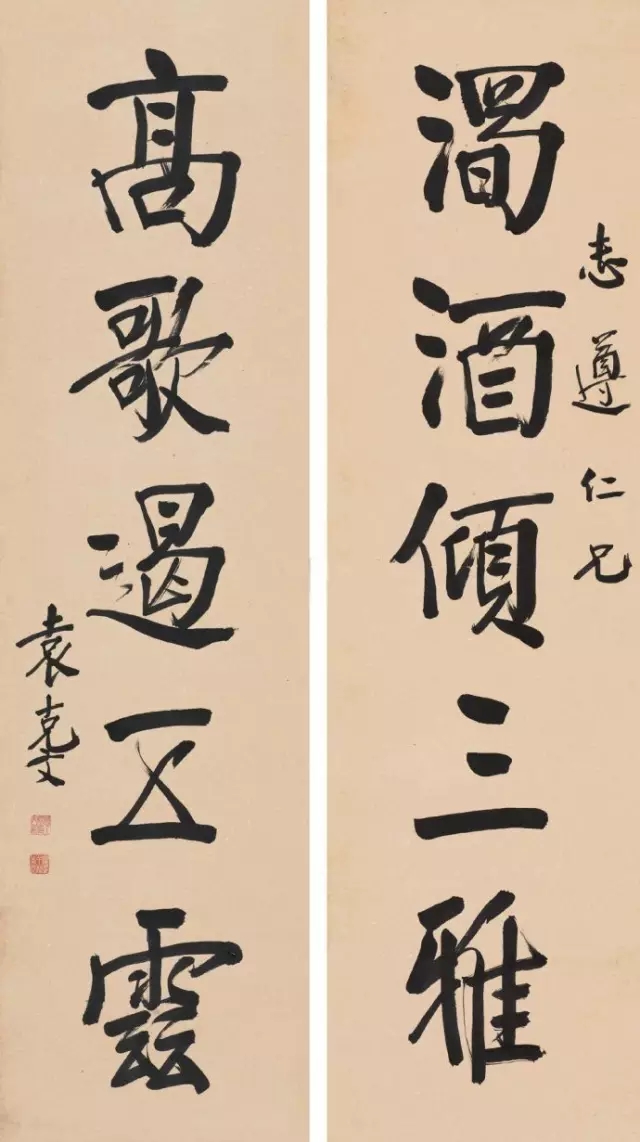 志遵仁兄
濁酒傾三雅
髙歌遏五雲
袁克文